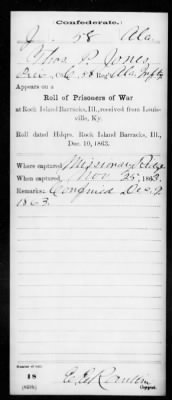 Confederate.
J. 58 Ala.
Thos. P. Jones
Co. 58 Reg Ala. Infty
Appears on a
Roll of Prisoners of War
at Rock Island Barracks, Ill., received from Louis-
ville, Ky.
Roll dated Hdqrs. Rock Island Barracks, Ill.,
Dec. 10, 1863.
Where captured Missionary Ridge
When captured, Nov 25, 1863.
Remarks: Confined Dec. 9
1863.
Number of roll:
18
Copyist.